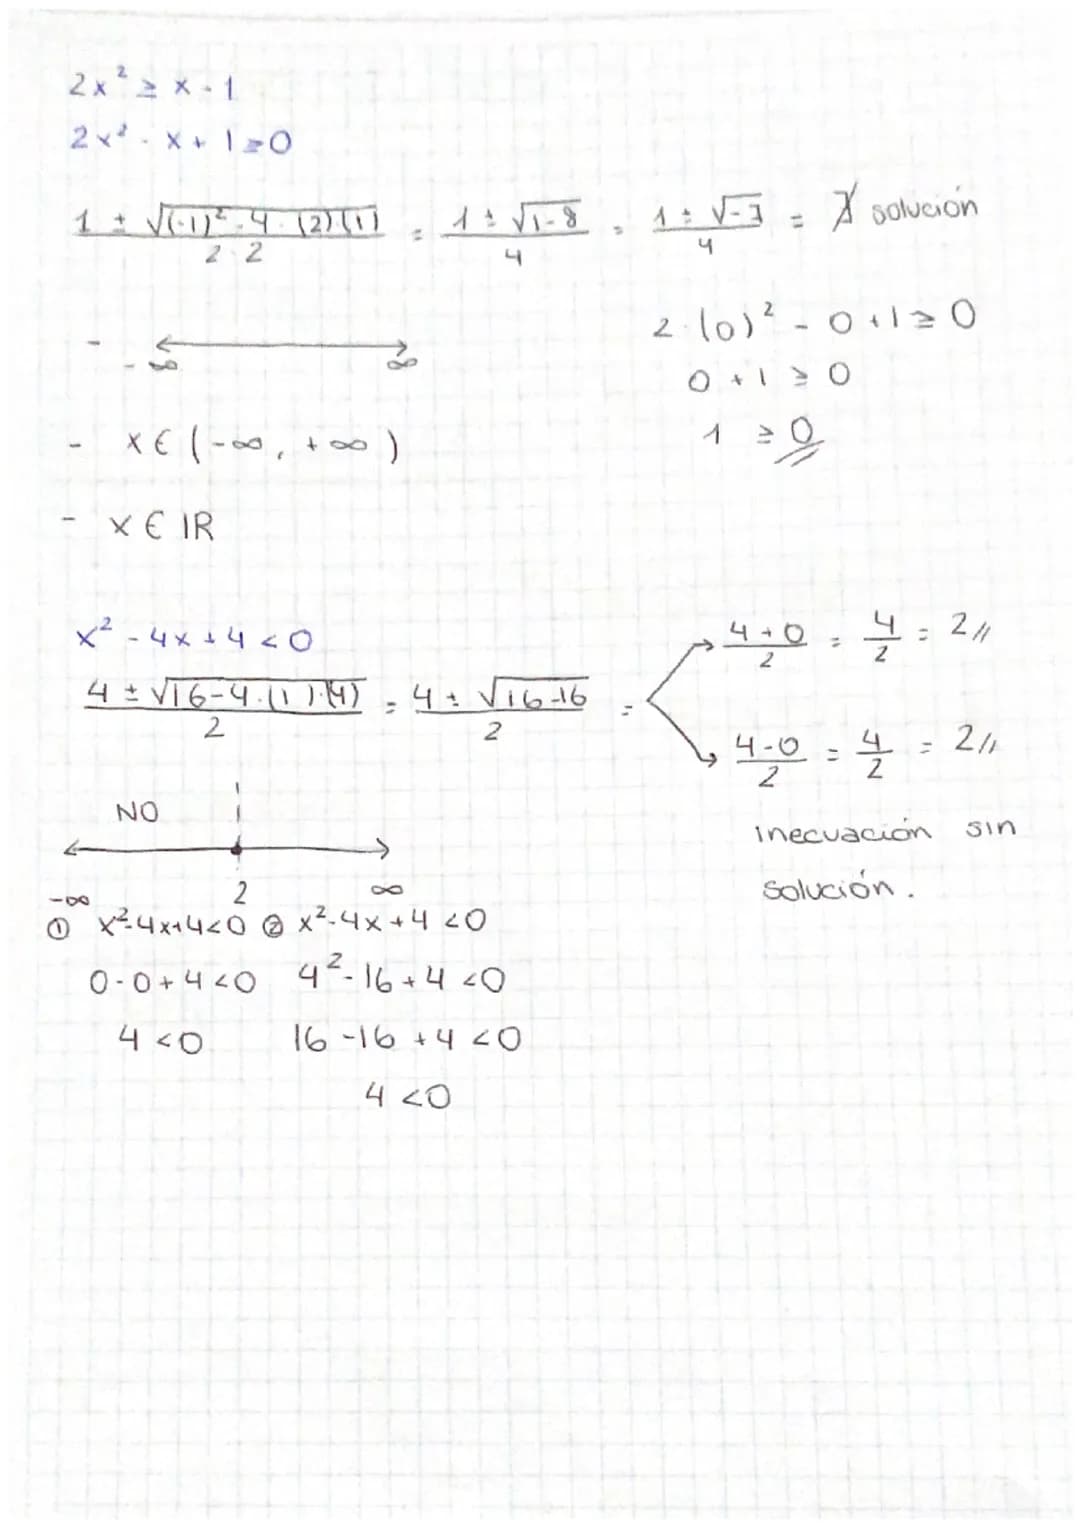 2x² ≥ x - 1
2x² - x + 1 ≥ 0
1 ± √(-1)² - 4·(2)·(1) / 2·2 = 1 ± √1-8 / 4 = 1 ± √-7 / 4 = ∄ solución
2·(0)² - 0 + 1 ≥ 0
- -∞ ∞
0 + 1 ≥ 0
- x ∈ (-∞, +∞)
1 ≥ 0
- x ∈ IR
x² - 4x + 4 < 0
4 ± √16-4·(1)·(4) / 2 = 4 ± √16-16 / 2 =
4+0 / 2 = 4/2 = 2//
4-0 / 2 = 4/2 = 2//
NO
-∞ 2 ∞
inecuación sin
solución.
① x²-4x+4<0 ② x²-4x+4<0
0-0+4<0 4²-16+4<0
4<0 16-16+4<0
4<0